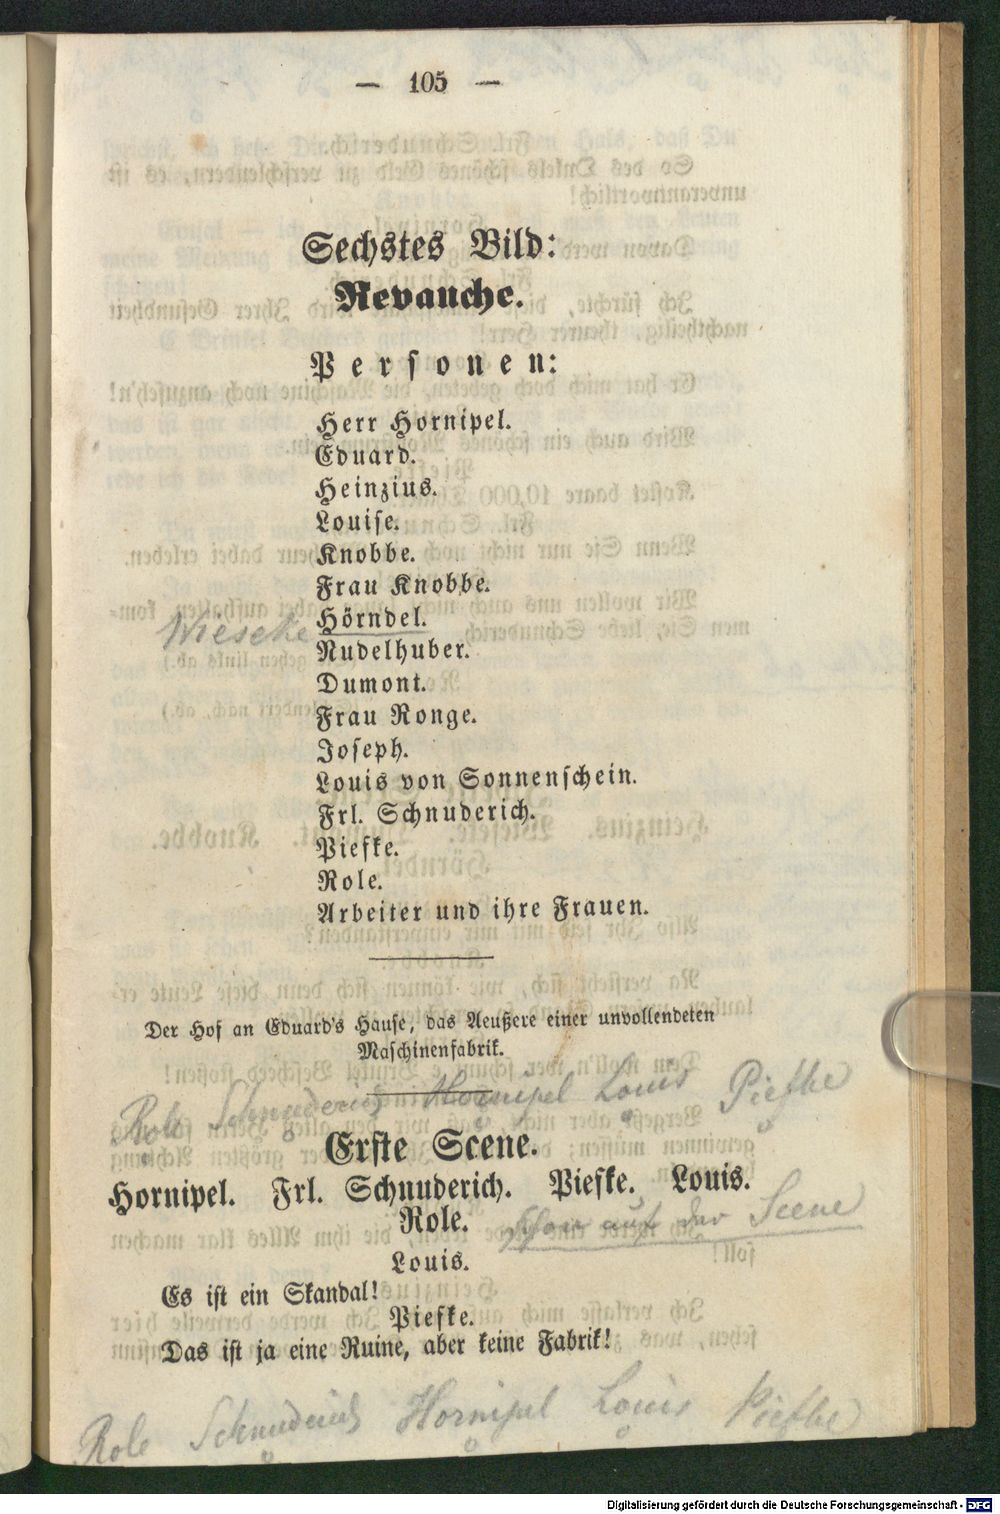 — 105 —
Sechstes Bild:
Revanche.
Personen:
Herr Hornipel.
Eduard.
Heinzius.
Louise.
Knobbe.
Frau Knobbe.
Wieseke Hörndel.
Nudelhuber.
Dumont.
Frau Ronge.
Joseph.
Louis von Sonnenschein.
Frl. Schnuderich.
Piefke.
Role.
Arbeiter und ihre Frauen.
Der Hof an Eduard's Hause, das Aeußere einer unvollendeten
Maschinenfabrik.
Role Schnuderich Hornipel Louis Piefke
Erste Scene.
Hornipel. Frl. Schnuderich. Piefke. Louis.
Role. schon auf der Scene
Louis.
Es ist ein Skandal!
Piefke.
Das ist ja eine Ruine, aber keine Fabrik!
Role Schnuderich Hornipel Louis Piefke
Digitalisierung gefördert durch die Deutsche Forschungsgemeinschaft - DFG